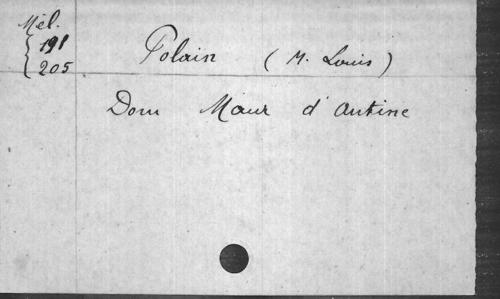 Mél.
191
205
Polain (M. Louis)
Dom Maur d'Antine